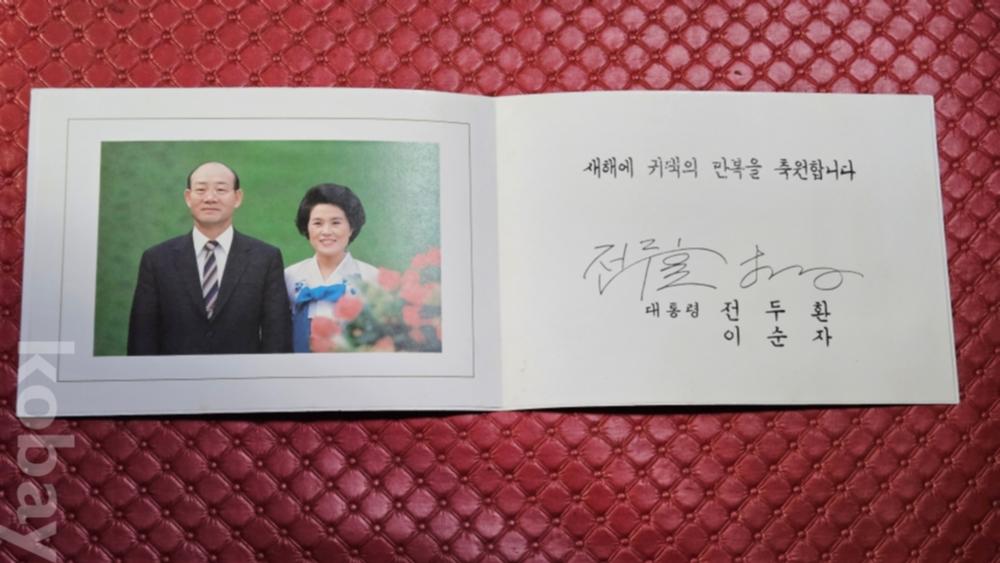 새해에 귀댁의 만복을 축원합니다
전두환
대통령 전 두 환
이 순 자
kobay